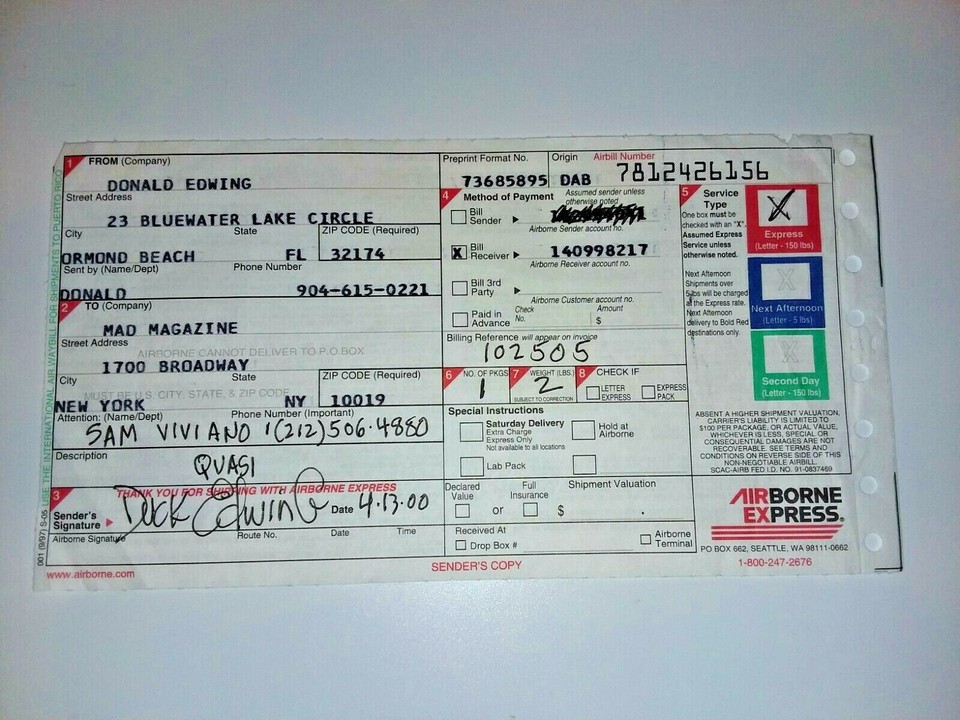 1 FROM (Company)
DONALD EDWING
Street Address
23 BLUEWATER LAKE CIRCLE
City State ZIP CODE (Required)
ORMOND BEACH FL 32174
Sent by (Name/Dept) Phone Number
DONALD 904-615-0221
2 TO (Company)
MAD MAGAZINE
Street Address
AIRBORNE CANNOT DELIVER TO P.O.BOX
1700 BROADWAY
City State ZIP CODE (Required)
MUST BE U.S. CITY, STATE, & ZIP CODE
NEW YORK NY 10019
Attention: (Name/Dept) Phone Number (Important)
SAM VIVIANO 1(212)506-4880
Description
QUASI
3 THANK YOU FOR SHIPPING WITH AIRBORNE EXPRESS
Sender's Signature Duck Edwing Date 4.13.00
Airborne Signature Route No. Date Time
www.airborne.com
001 (9/97) S-05 USE THE INTERNATIONAL AIR WAYBILL FOR SHIPMENTS TO PUERTO RICO
Preprint Format No. Origin Airbill Number
73685895 DAB 7812426156
4 Method of Payment
Assumed sender unless
otherwise noted
Bill Sender
Airborne Sender account no.
X Bill Receiver 140998217
Airborne Receiver account no.
Bill 3rd Party
Airborne Customer account no.
Paid in Advance Check No. Amount $
Billing Reference will appear on invoice
102505
6 NO. OF PKGS 7 WEIGHT (LBS.) 8 CHECK IF
1 2 LETTER EXPRESS EXPRESS PACK
SUBJECT TO CORRECTION
Special Instructions
Saturday Delivery
Extra Charge
Express Only
Not available to all locations
Hold at Airborne
Lab Pack
Declared Value or Full Insurance Shipment Valuation
$ .
Received At
Drop Box # Airborne Terminal
SENDER'S COPY
5 Service Type
One box must be
checked with an "X".
Assumed Express
Service unless
otherwise noted.
X
Express
(Letter - 150 lbs)
Next Afternoon
Shipments over
5 lbs will be charged
at the Express rate.
Next Afternoon
delivery to Bold Red
destinations only.
X
Next Afternoon
(Letter - 5 lbs)
X
Second Day
(Letter - 150 lbs)
ABSENT A HIGHER SHIPMENT VALUATION,
CARRIER'S LIABILITY IS LIMITED TO
$100 PER PACKAGE, OR ACTUAL VALUE,
WHICHEVER IS LESS. SPECIAL OR
CONSEQUENTIAL DAMAGES ARE NOT
RECOVERABLE. SEE TERMS AND
CONDITIONS ON REVERSE SIDE OF THIS
NON-NEGOTIABLE AIRBILL.
SCAC-AIRB FED I.D. NO. 91-0837469
AIRBORNE
EXPRESS®
PO BOX 662, SEATTLE, WA 98111-0662
1-800-247-2676